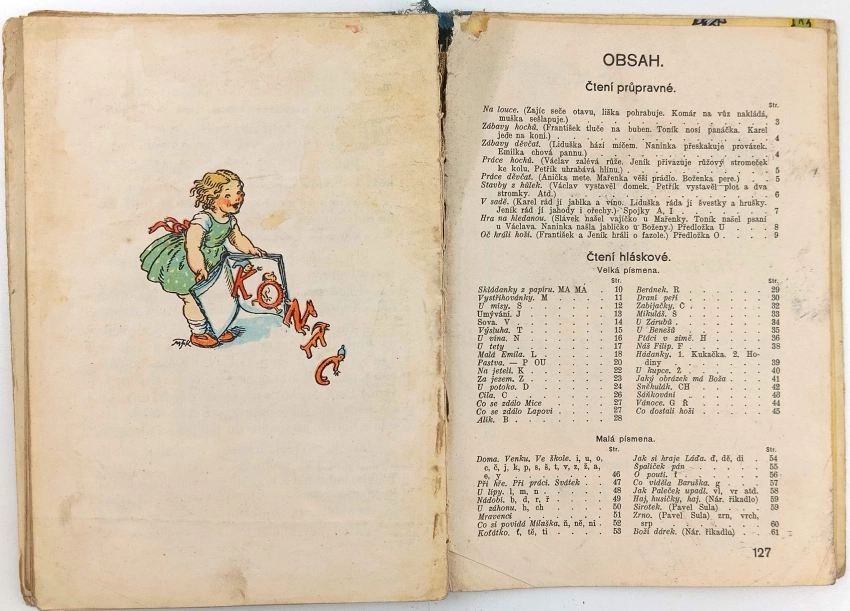 KONEC
MFK
OBSAH.
Čtení průpravné.
Str.
Na louce. (Zajíc seče otavu, liška pohrabuje. Komár na vůz nakládá,
muška sešlapuje.) . . . . . . . . . . . 3
Zábavy hochů. (František tluče na buben. Toník nosí panáčka. Karel
jede na koni.) . . . . . . . . . . . 4
Zábavy děvčat. (Liduška hází míčem. Naninka přeskakuje provázek.
Emilka chová pannu.) . . . . . . . . . . . 4
Práce hochů. (Václav zalévá růže. Jeník přivazuje růžový stromeček
ke kolu. Petřík uhrabává hlínu.) . . . . . . . . 5
Práce děvčat. (Anička mete. Mařenka věší prádlo. Boženka pere.) . 5
Stavby z hůlek. (Václav vystavěl domek. Petřík vystavěl plot a dva
stromky. Atd.) . . . . . . . . . . . 6
V sadě. (Karel rád jí jablka a víno. Liduška ráda jí švestky a hrušky.
Jeník rád jí jahody i ořechy.) Spojky A, I . . . . . 7
Hra na hledanou. (Slávek našel vajíčko u Mařenky. Toník našel psaní
u Václava. Naninka našla jablíčko u Boženy.) Předložka U . 8
Oč hráli hoši. (František a Jeník hráli o fazole.) Předložka O . . 9
Čtení hláskové.
Velká písmena.
Str.
Skládanky z papíru. MA MÁ 10
Vystřihovánky. M . . . . 11
U mísy. S . . . . . 12
Umývání. J . . . . . 13
Sova. V . . . . . 14
Výsluha. T . . . . . 15
U vína. N . . . . . 16
U tety . . . . . 17
Malá Emila. L . . . . 18
Pastva. — P OU . . . . 20
Na jeteli. K . . . . 22
Za jezem. Z . . . . 23
U potoka. D . . . . 24
Cíla. C . . . . . 26
Co se zdálo Mice . . . . 27
Co se zdálo Lapovi . . . 27
Alík. B . . . . . 28
Str.
Beránek. R . . . . . 29
Draní peří . . . . . 30
Zabijačky. Č . . . . 32
Mikuláš. Š . . . . . 33
U Zárubů . . . . . 34
U Benešů . . . . . 35
Ptáci v zimě. H . . . . 36
Náš Filip. F . . . . 38
Hádanky. 1. Kukačka. 2. Ho-
diny . . . . . 39
U kupce. Ž . . . . . 40
Jaký obrázek má Boža . . 41
Sněhulák. CH . . . . 42
Sáňkování . . . . . 43
Vánoce. G Ř . . . . 44
Co dostali hoši . . . . 45
Malá písmena.
Str.
Doma. Venku. Ve škole. i, u, o,
c, č, j, k, p, s, š, t, v, z, ž, a,
e, y . . . . . 46
Při hře. Při práci. Svátek . . 47
U lípy. l, m, n . . . . 48
Nádobí. b, d, r, ř . . . 49
U záhonu. h, ch . . . . 50
Mravenci . . . . . 51
Co si povídá Milaška, ň, ně, ni . 52
Koťátko. ť, tě, ti . . . . 53
Str.
Jak si hraje Láďa. ď, dě, di . 54
Špalíček pán . . . . 55
O pouti. f . . . . . 56
Co viděla Baruška. g . . . 57
Jak Paleček upadl. vl, vr atd. 58
Haj, husičky, haj. (Nár. říkadlo) 59
Sirotek. (Pavel Sula) . . . 59
Zrno. (Pavel Sula) zrn, vrch,
srp . . . . . 60
Boží dárek. (Nár. říkadlo) . . 61
127